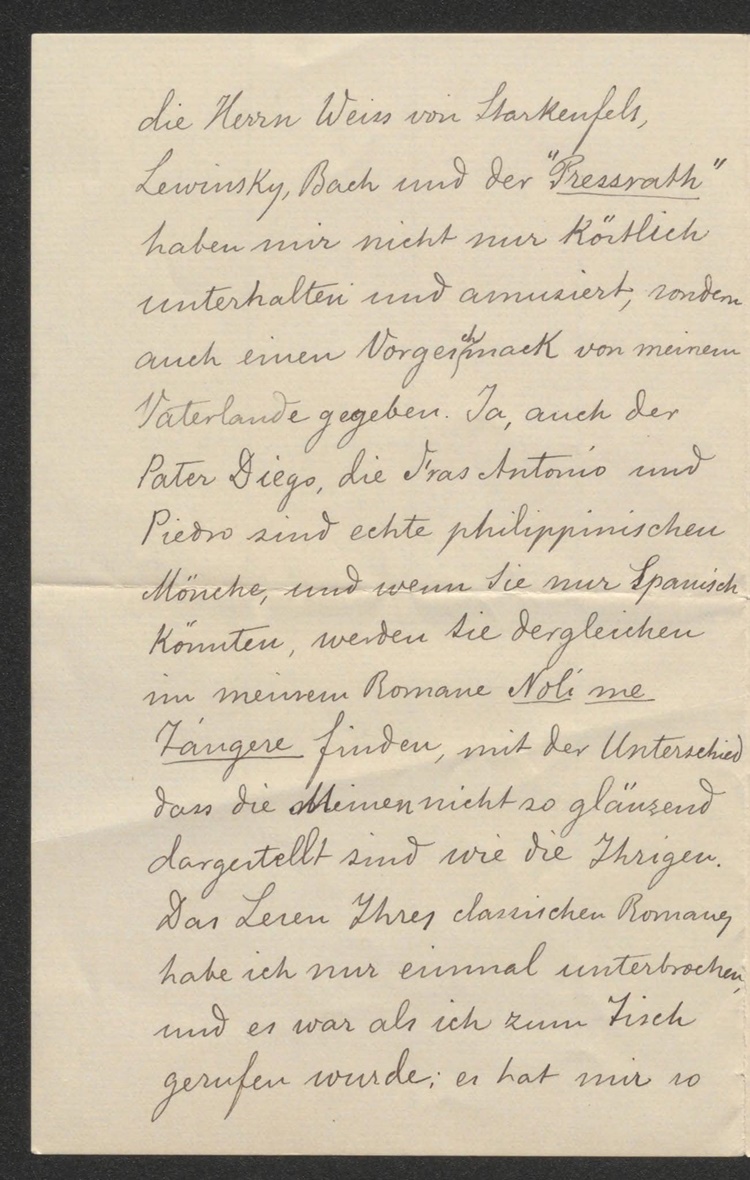 die Herrn Weiss von Starkenfels,
Lewinsky, Bach und der "Pressrath"
haben mir nicht nur köstlich
unterhalten und amusiert, sondern
auch einen Vorgeschmack von meinem
Vaterlande gegeben. Ja, auch der
Pater Diego, die Fras Antonio und
Piedro sind echte philippinischen
Mönche, und wenn Sie nur Spanisch
könnten, werden Sie dergleichen
im meinem Romane Noli me
Tángere finden, mit der Unterschied
dass die Meinen nicht so glänzend
dargestellt sind wie die Ihrigen.
Das Lesen Ihres classischen Romanes
habe ich nur einmal unterbrochen,
und es war als ich zum Tisch
gerufen wurde; es hat mir so